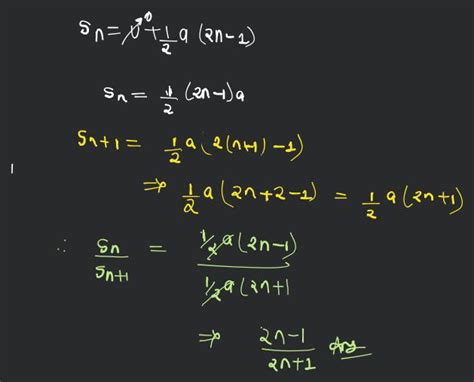 Sn = u⁰ + 1/2 a (2n-1)
Sn = 1/2 (2n-1)a
Sn+1 = 1/2 a (2(n+1) -1)
⇒ 1/2 a (2n+2-1) = 1/2 a (2n+1)
∴ Sn/Sn+1 = 1/2 a (2n-1) / 1/2 a (2n+1
⇒ 2n-1/2n+1 Ans